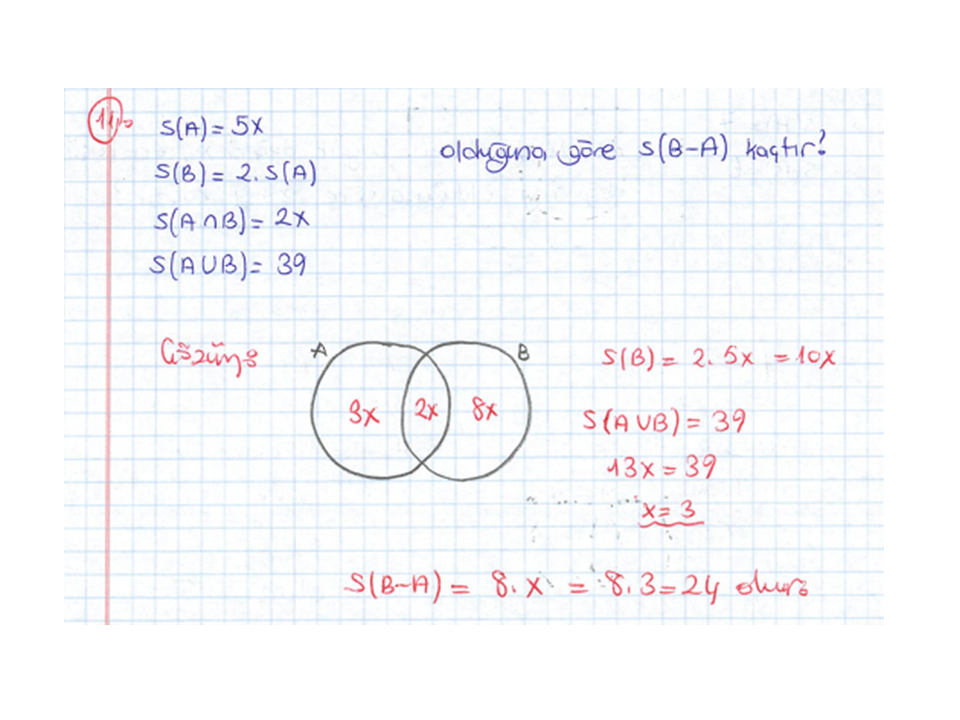 11)
S(A) = 5x
olduğuna göre S(B-A) kaçtır?
S(B) = 2. S(A)
S(A∩B) = 2x
S(A∪B) = 39
Çözüm:
A
B
3x
2x
8x
S(B) = 2. 5x = 10x
S(A∪B) = 39
13x = 39
x = 3
S(B-A) = 8. x = 8. 3 = 24 olur.